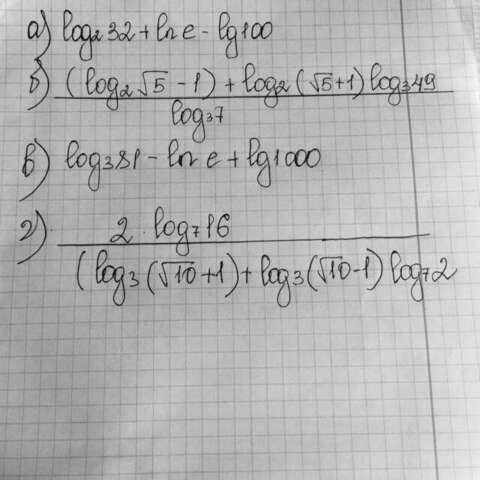 а) log₂32 + ln e - lg100
б) ((log₂√5 - 1) + log₂(√5+1) log₃49
log₃7
в) log₃81 - ln e + lg1000
г) 2 · log₇16
(log₃(√10+1) + log₃(√10-1) log₇2